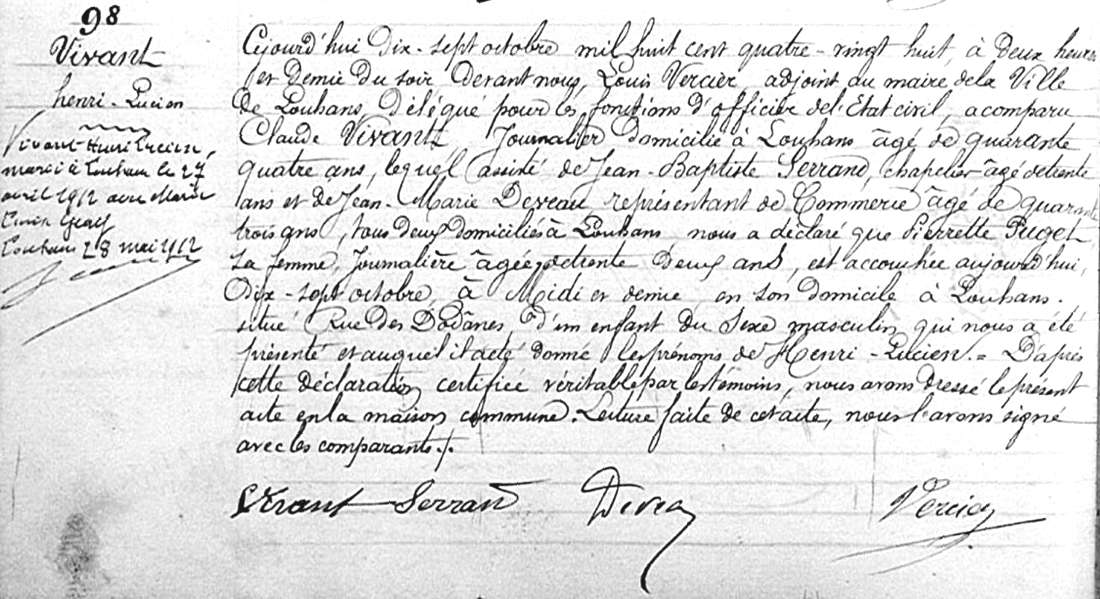 98
Vivant
henri-Lucien
Vivant Henri Lucien,
marié à Louhans le 27
avril 1912 avec Marie
Louhans 28 mai 1912
Cejourd'hui Dix-sept octobre mil huit cent quatre-vingt huit, à Deux heures
et Demie Du soir Devant nous, Louis Vercier adjoint au maire de la Ville
de Louhans, Délégué pour les fonctions D'officier de l'Etat civil, a comparu
Claude Vivant, Journalier, domicilié à Louhans âgé de quarante
quatre ans, lequel assisté de Jean-Baptiste Serrand, chapelier âgé de trente
ans et de Jean-Marie Deveau représentant de Commerce âgé de quarante
trois ans, tous Deux domiciliés à Louhans nous a déclaré que Pierrette Puget
sa femme, Journalière âgée de trente Deux ans, est accouchée aujourd'hui,
Dix-sept octobre, à Midi et demie en son domicile à Louhans.
situé Rue des Dodânes, d'un enfant du Sexe masculin qui nous a été
présenté et auquel il a été donné les prénoms de Henri-Lucien. = D'après
cette déclaration certifiée véritable par les témoins, nous avons dressé le présent
acte en la maison commune. Lecture faite de cet acte, nous l'avons signé
avec les comparants ./.
Vivant Serrand Devea Vercier